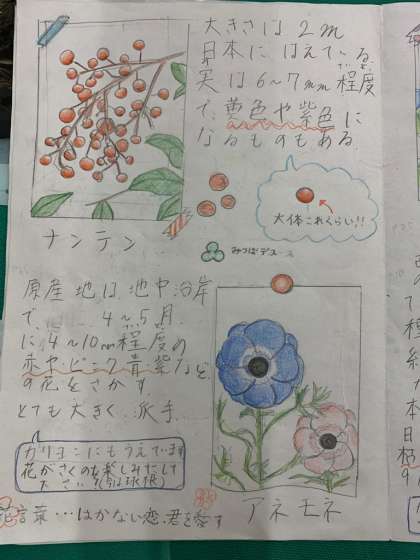 大きさは2m
日本にはえている
実は6~7mm程度
で、黄色や紫色に
なるものもある
大体これくらい!!
ナンテン
みつばデース
原産地は地中沿岸
で、4~5月
に4~10cm程度の
赤やピンク青紫など
の花をさかす
とても大きく派手
カリヨンにもうえています
花がさくのを楽しみにして
ください(球根)
アネモネ
花言葉…はかない恋、君を愛す